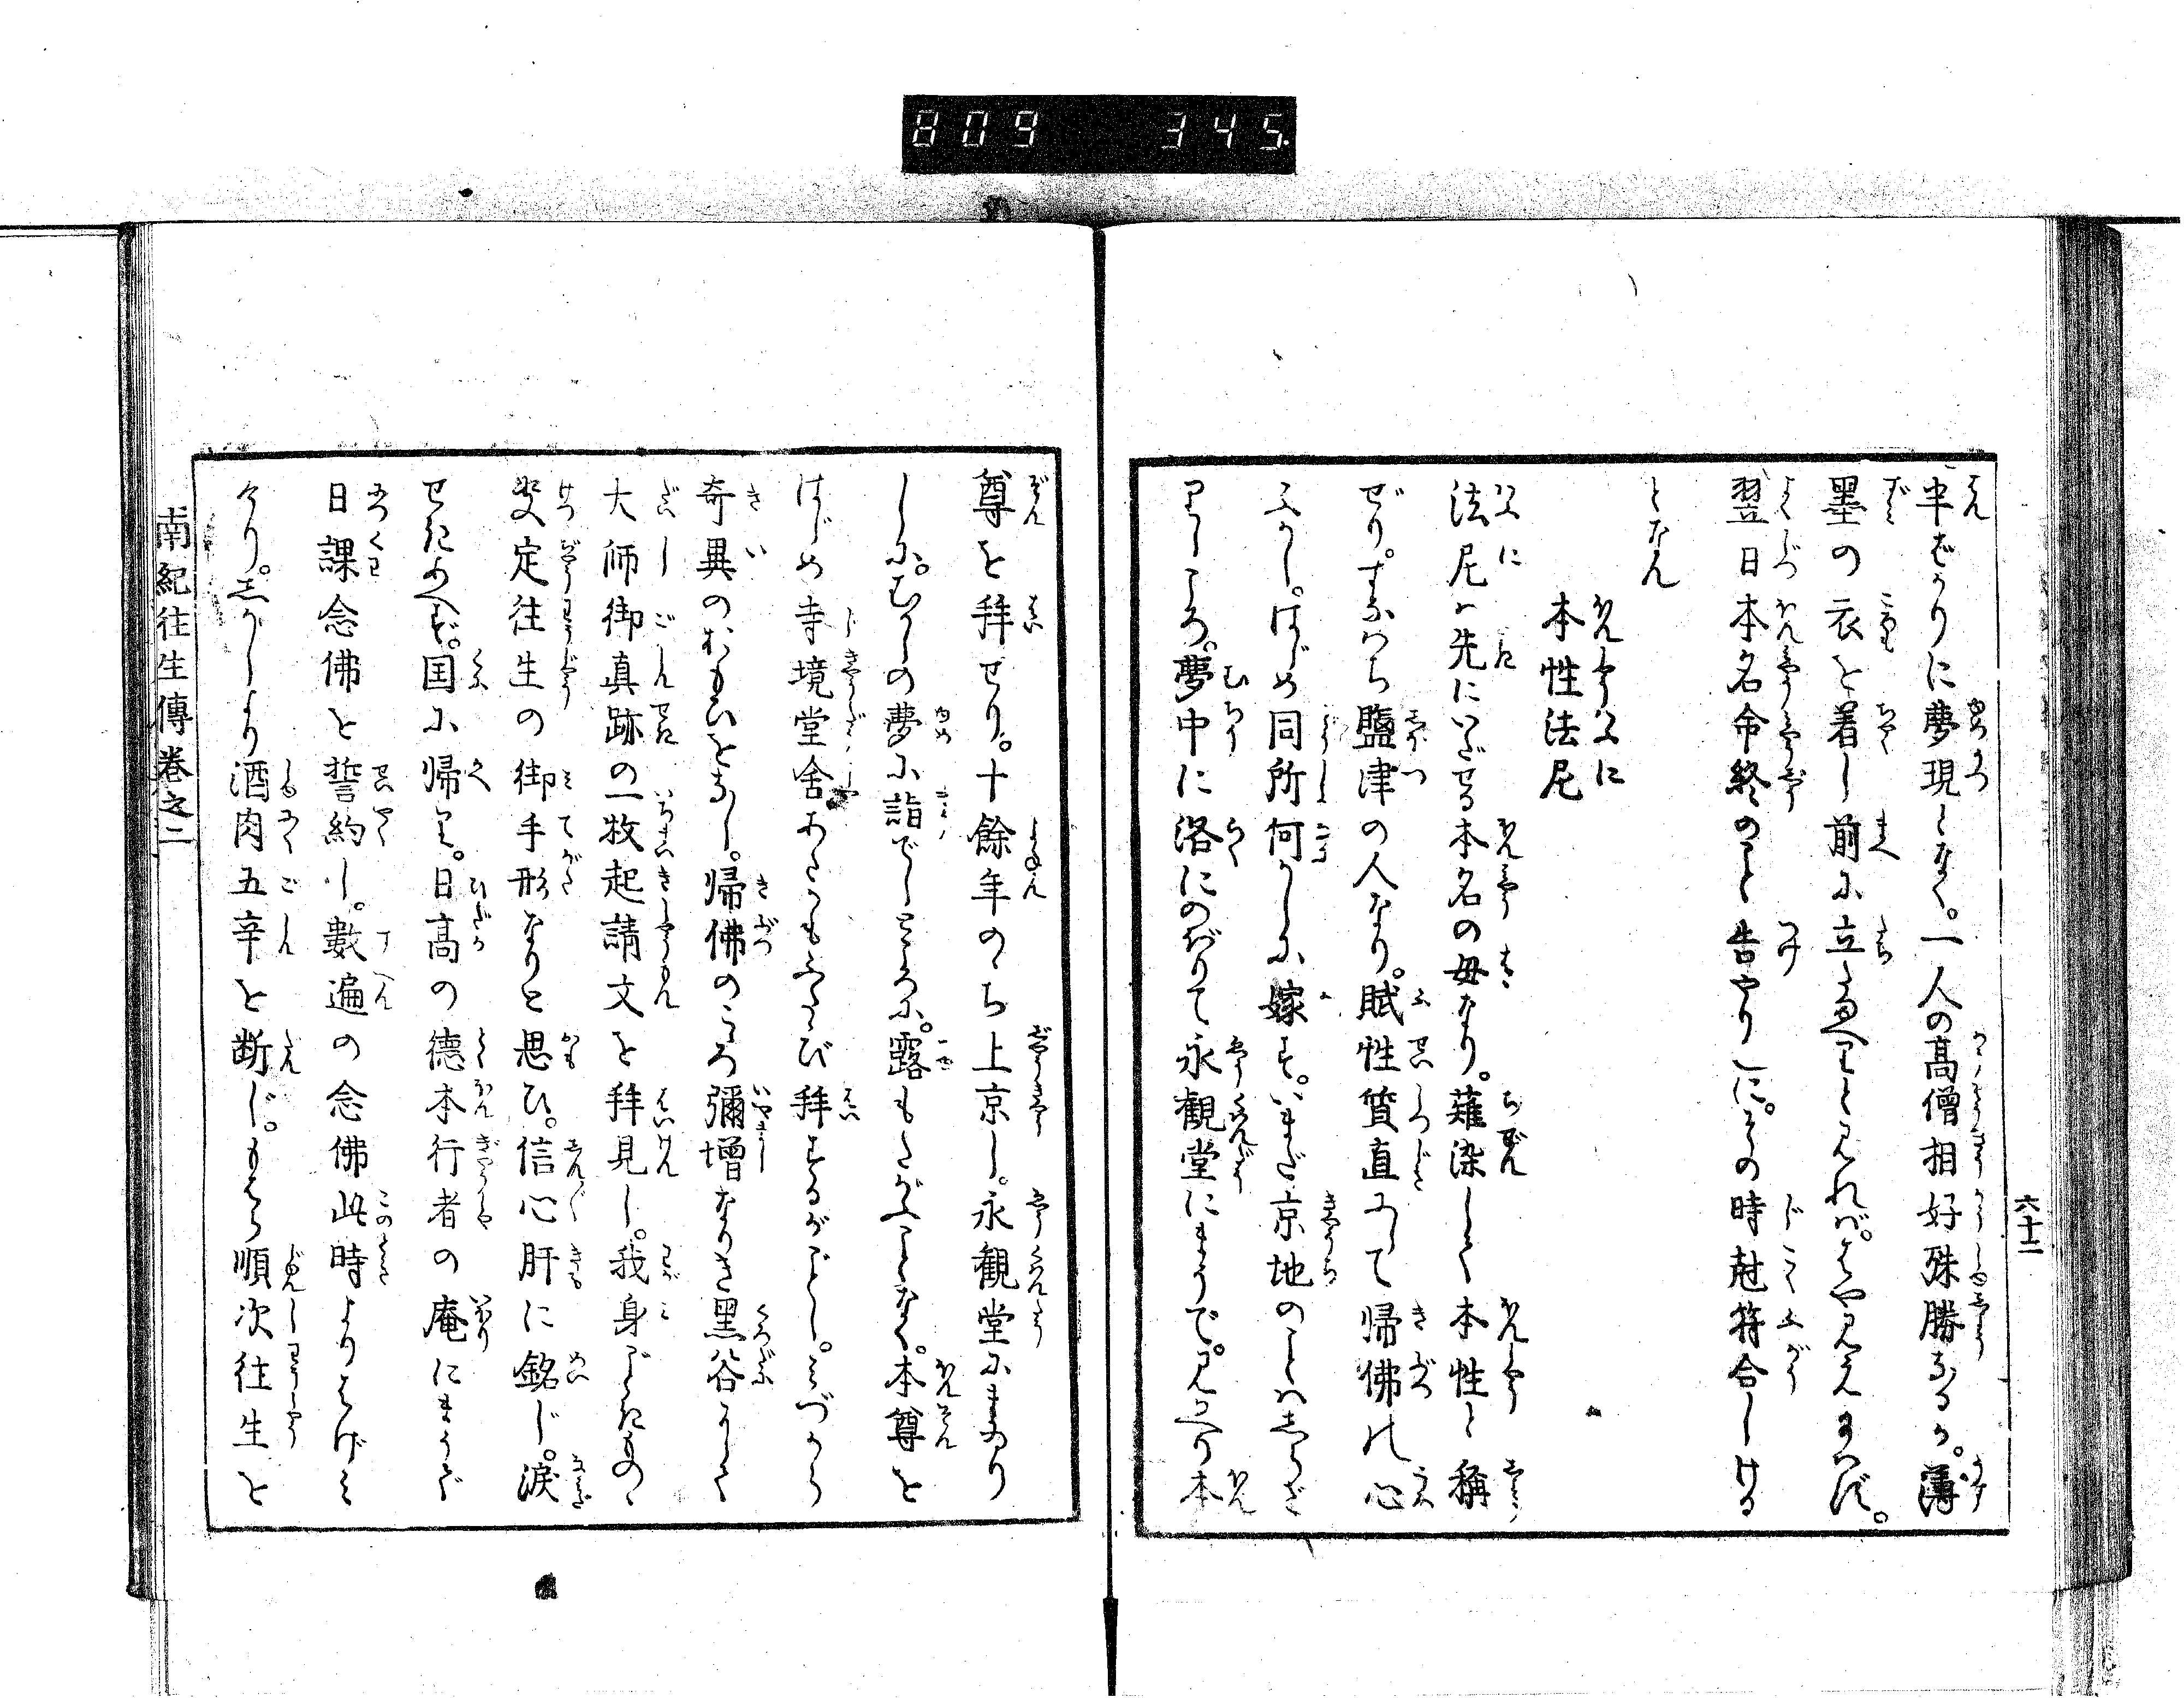 809 345
六十二
半ばかりに夢現となく。一人の髙僧相好殊勝なるが。薄
墨の衣を着し前に立給へりと見れば。はや見えまさず。
翌日本名命終のこと告やりしに。その時尅符合しける
となん
本性法尼
法尼ハ先にいだせる本名の母なり。薙染して本性と稱
ぜり。すなハち鹽津の人なり。賦性質直にして帰佛の心
ふかし。はじめ同所何がしに嫁す。いまだ京地のことハしらざ
りしころ。夢中に洛にのぼりて永觀堂にまうで。見かへり本
尊を拜せり。十餘年のち上京し。永觀堂にまゐり
しに。むかしの夢に詣でしところに。露もたがふことなく。本尊を
はじめ寺境堂舍あたかもふたゝび拜するがごとし。みづから
奇異のおもひをなし。帰佛のこころ彌增なりき黑谷にして
大師御真跡の一牧起請文を拜見し。我身ごときものゝ
决定往生の御手形なりと思ひ。信心肝に銘じ。淚
せきあへず。国に帰りて。日高の德本行者の庵にまうで
日課念佛を誓約し。數遍の念佛此時よりはげみ
けり。しかしより酒肉五辛を断じ。もはら順次往生を
南紀往生傳卷之二